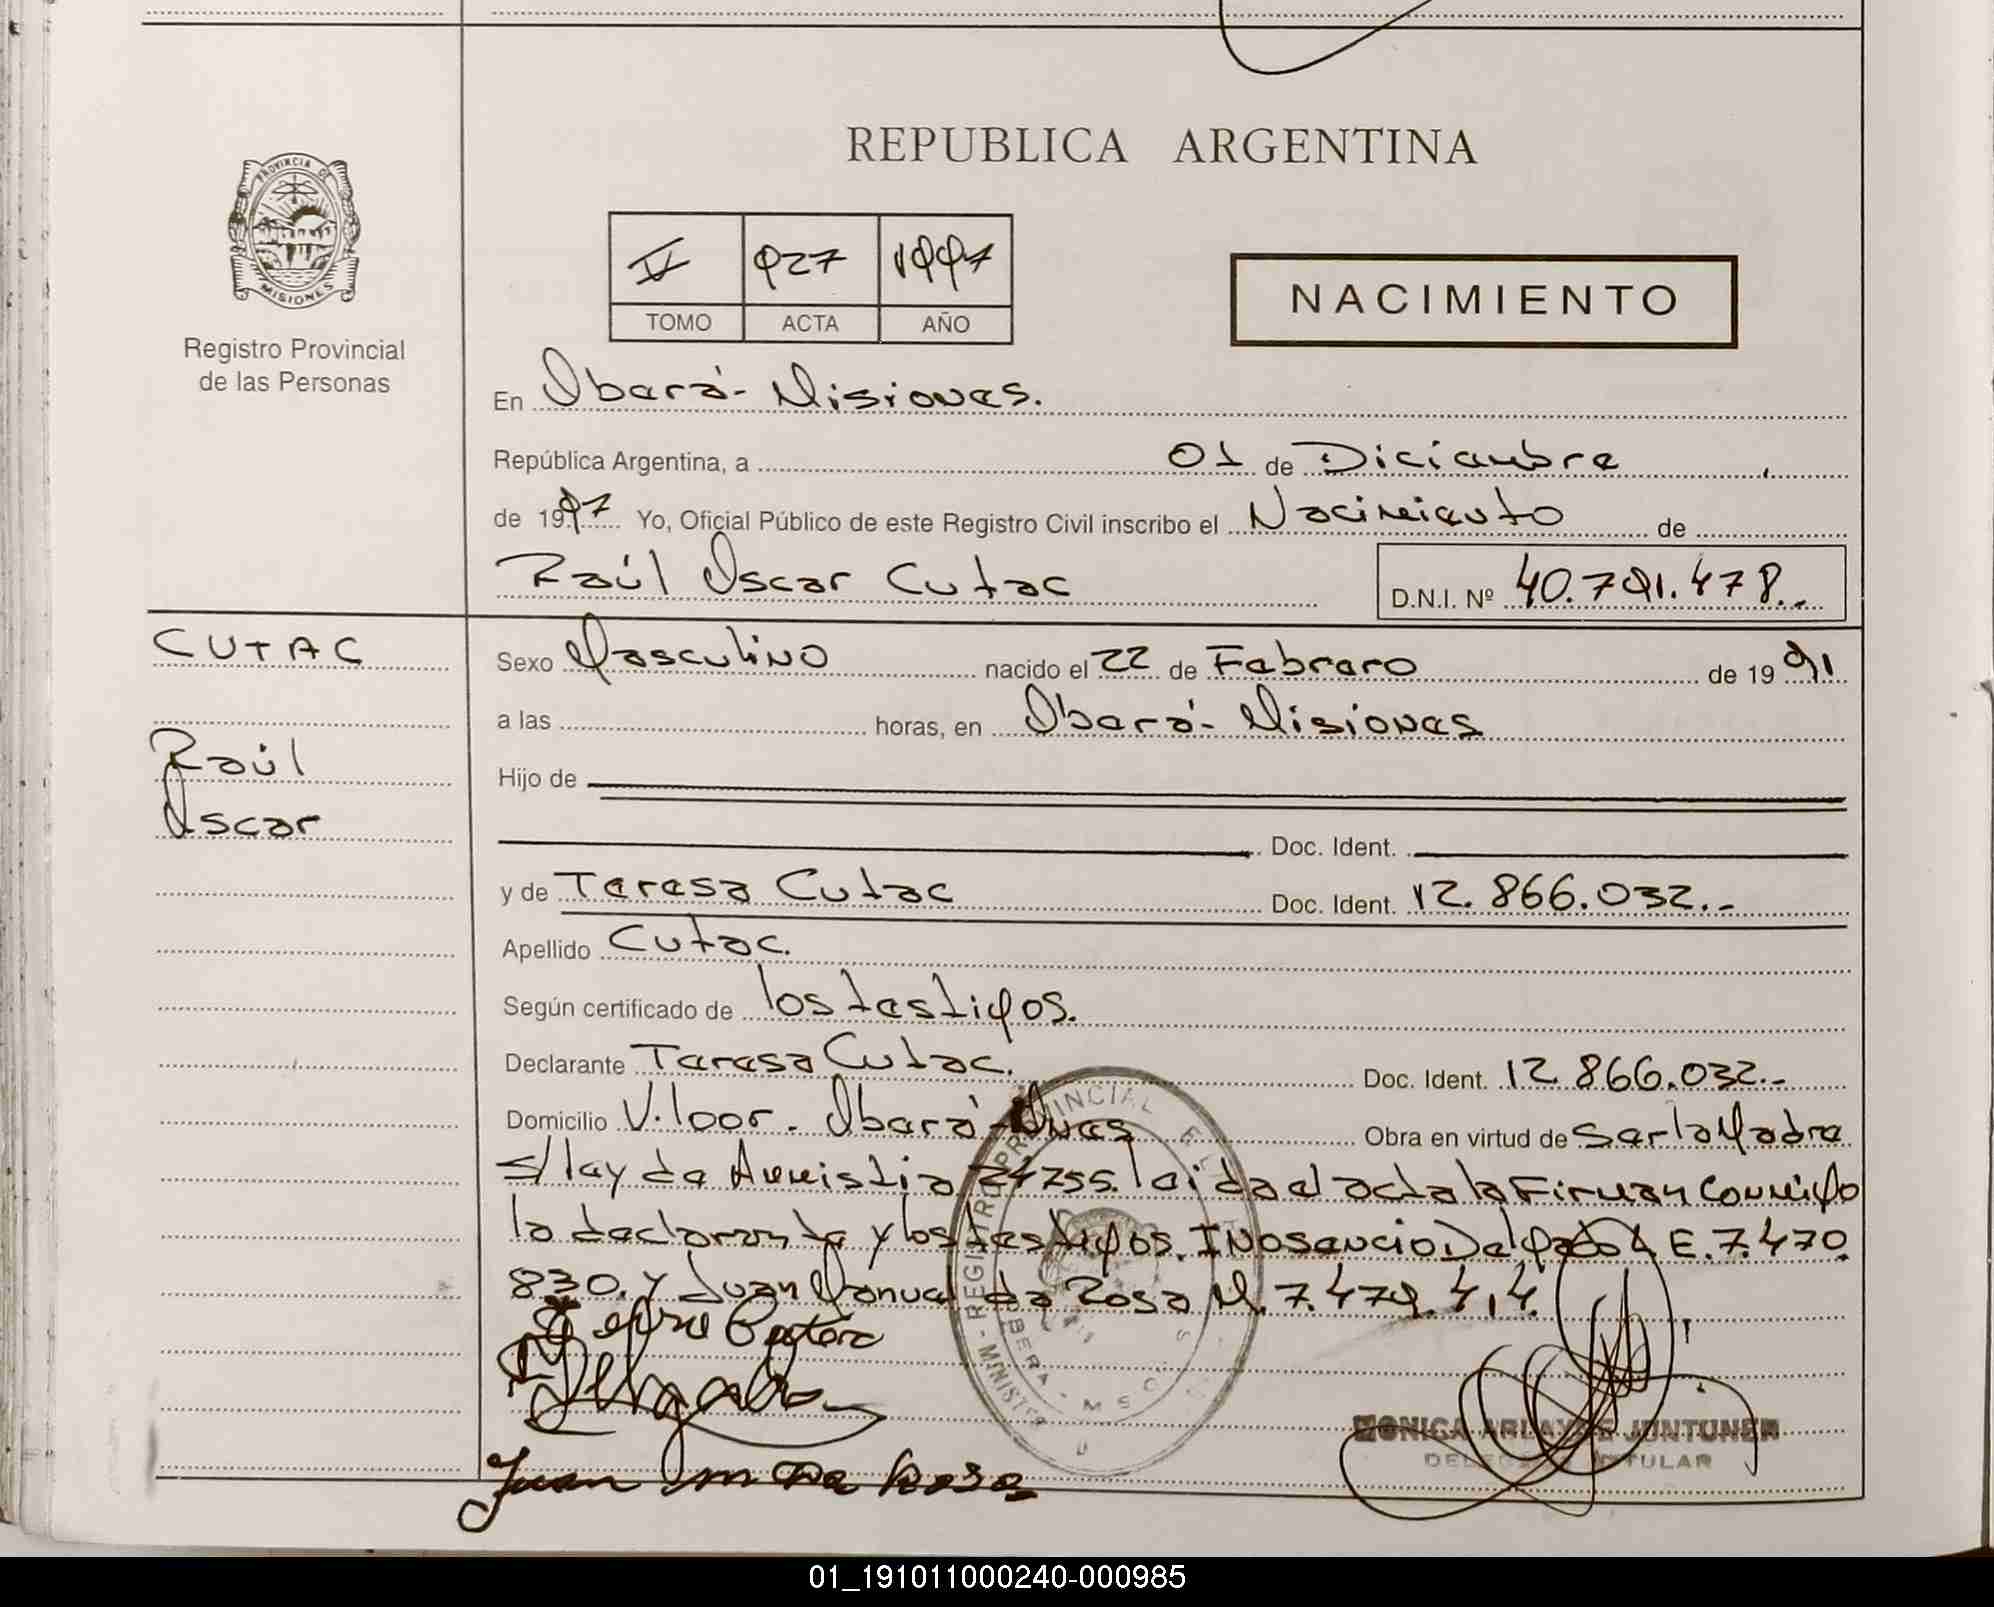 REPUBLICA ARGENTINA
PROVINCIA DE MISIONES
Registro Provincial
de las Personas
IV 927 1997
TOMO ACTA AÑO
NACIMIENTO
En Oberá - Misiones.
República Argentina, a 01 de Diciembre
de 1997 Yo, Oficial Público de este Registro Civil inscribo el Nacimiento de
Raúl Oscar Cutac D.N.I. Nº 40.791.478.-
CUTAC
Raúl
Oscar
Sexo Masculino nacido el 22 de Febrero de 1991
a las horas, en Oberá - Misiones
Hijo de
Doc. Ident.
y de Teresa Cutac Doc. Ident. 12.866.032.-
Apellido Cutac.
Según certificado de los testigos.
Declarante Teresa Cutac. Doc. Ident. 12.866.032.-
Domicilio V. loor. Oberá - Mnes Obra en virtud de ser la Madre
s/ ley de Amnistia 24755. leida el acta la Firman conmigo
la declarante y los testigos. Inosencio Delgado L E. 7.470.
830. y Juan Manuel da Rosa M. 7.479.414.
Delgado
Juan M Da Rosa
REGISTRO PROVINCIAL
OBERA - MS
MONICA JUNTUNEN
TITULAR
01_191011000240-000985